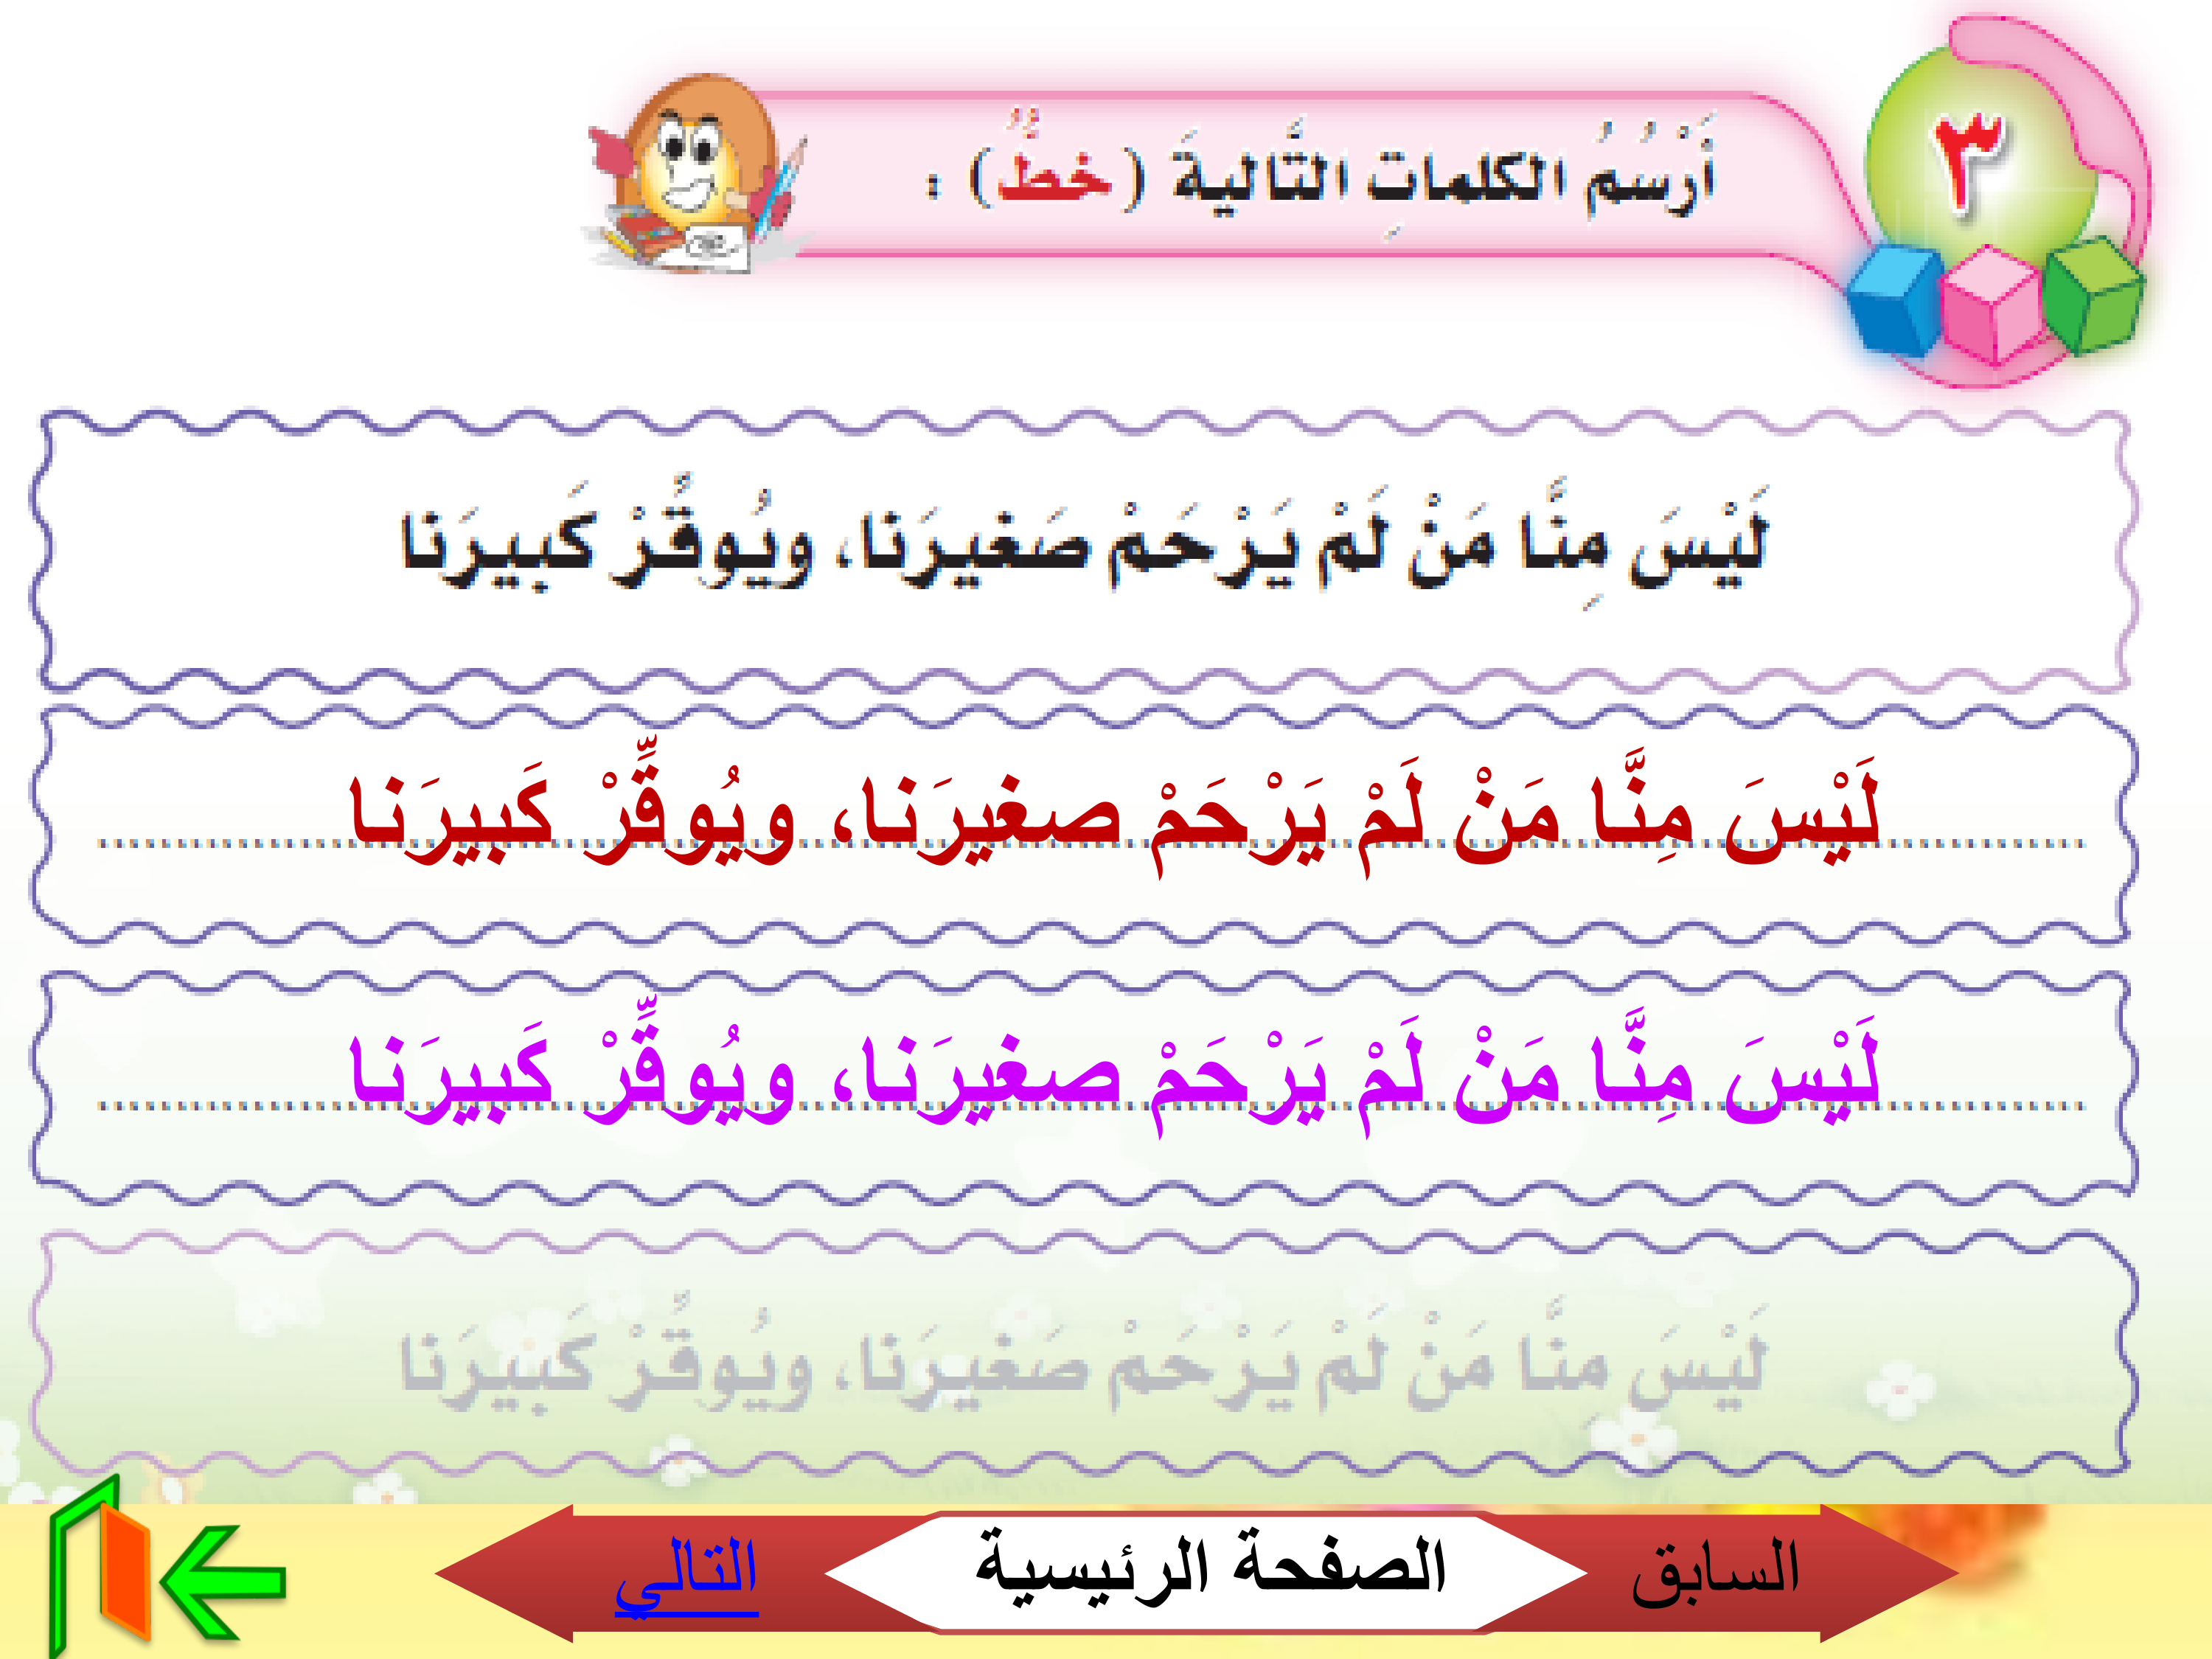 ٣
أَرْسُمُ الكلماتِ التَّاليةَ (خطٌّ) :
لَيْسَ مِنَّا مَنْ لَمْ يَرْحَمْ صَغيرَنا، ويُوقِّرْ كَبيرَنا
لَيْسَ مِنَّا مَنْ لَمْ يَرْحَمْ صغيرَنا، ويُوقِّرْ كَبيرَنا
لَيْسَ مِنَّا مَنْ لَمْ يَرْحَمْ صغيرَنا، ويُوقِّرْ كَبيرَنا
لَيْسَ مِنَّا مَنْ لَمْ يَرْحَمْ صَغيرَنا، ويُوقِّرْ كَبيرَنا
السابق الصفحة الرئيسية التالي